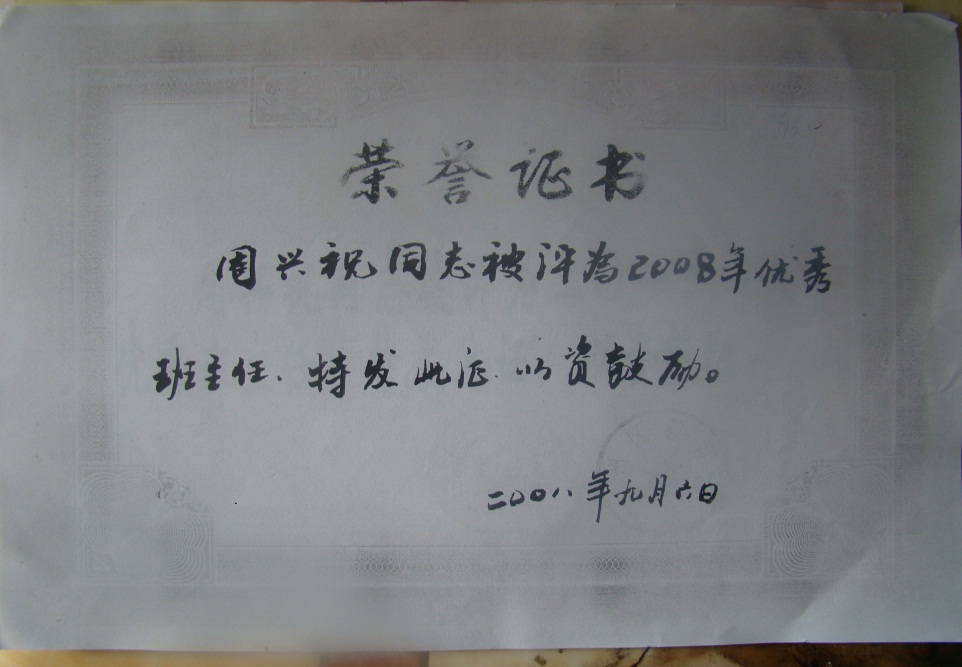 荣誉证书
周兴祝同志被评为2008年优秀
班主任、特发此证 以资鼓励。
二00八年九月六日